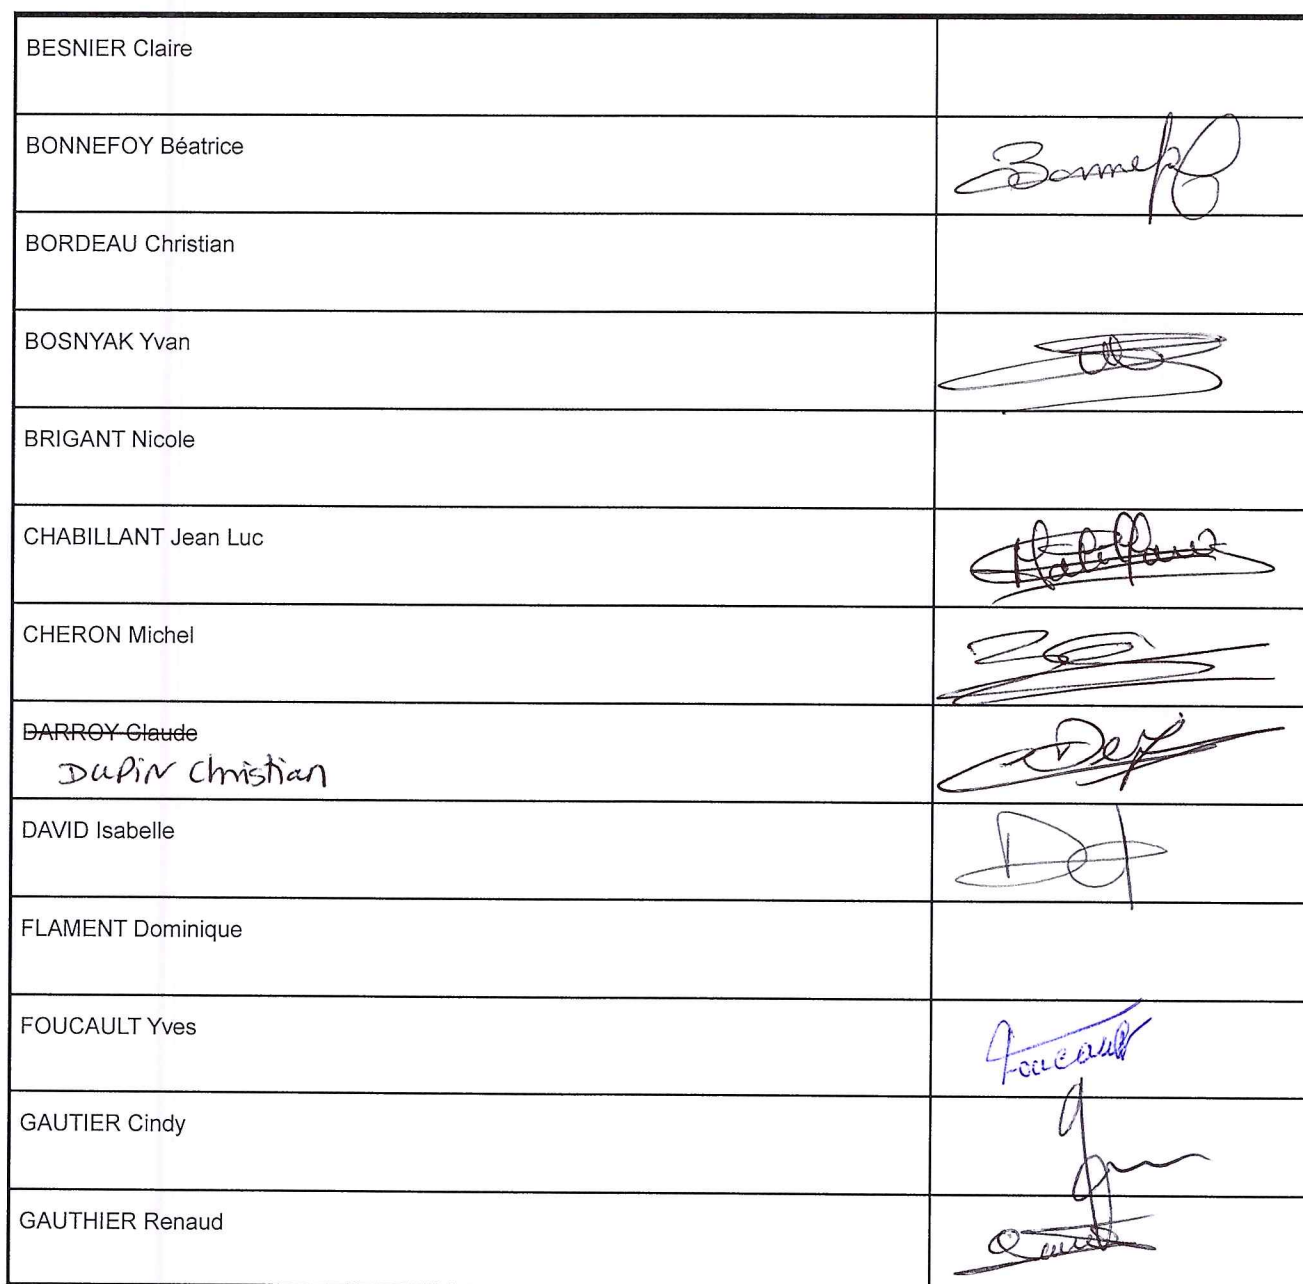 BESNIER Claire
BONNEFOY Béatrice
Bonnefoy
BORDEAU Christian
BOSNYAK Yvan
BRIGANT Nicole
CHABILLANT Jean Luc
CHERON Michel
DARROY Claude
DUPIN Christian
DAVID Isabelle
FLAMENT Dominique
FOUCAULT Yves
Foucault
GAUTIER Cindy
GAUTHIER Renaud